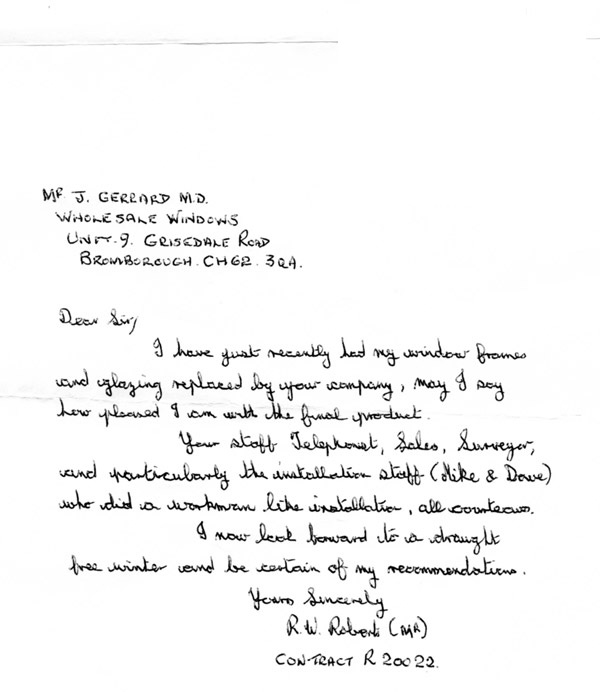 Mr J. GERRARD M.D.
WHOLESALE WINDOWS
UNIT. 9. GRISEDALE ROAD
BROMBOROUGH. CH62. 3QA.
Dear Sir,
I have just recently had my window frames
and glazing replaced by your company, may I say
how pleased I am with the final product.
Your staff Telephonist, Sales, Surveyor,
and particularly the installation staff (Mike & Dave)
who did a workman like installation, all courteous.
I now look forward to a draught
free winter and be certain of my recommendations.
Yours Sincerely
R.W. Roberts (MR)
CONTRACT R 20022.